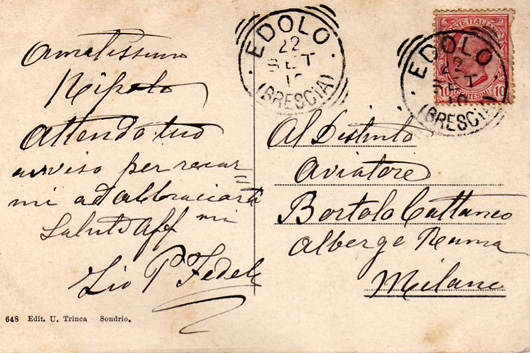 Amatissimo
Nipote
Attendo tuo
avviso per recar=
mi ad abbracciarti
Saluti Aff mi
Zio P Fedele
648 Edit. U. Trinca Sondrio.
EDOLO
22
SET
10
(BRESCIA)
POSTE ITALIANE
10 10
EDOLO
22
SET
10
(BRESCIA)
Al Distinto
Aviatore
Bortolo Cattaneo
Albergo Roma
Milano